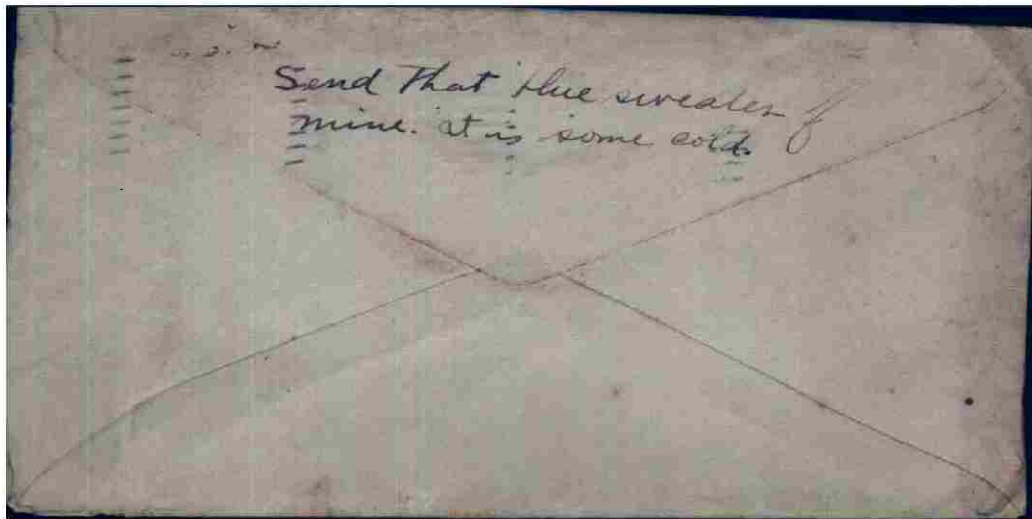 Send That blue sweater of
mine. it is some cold.